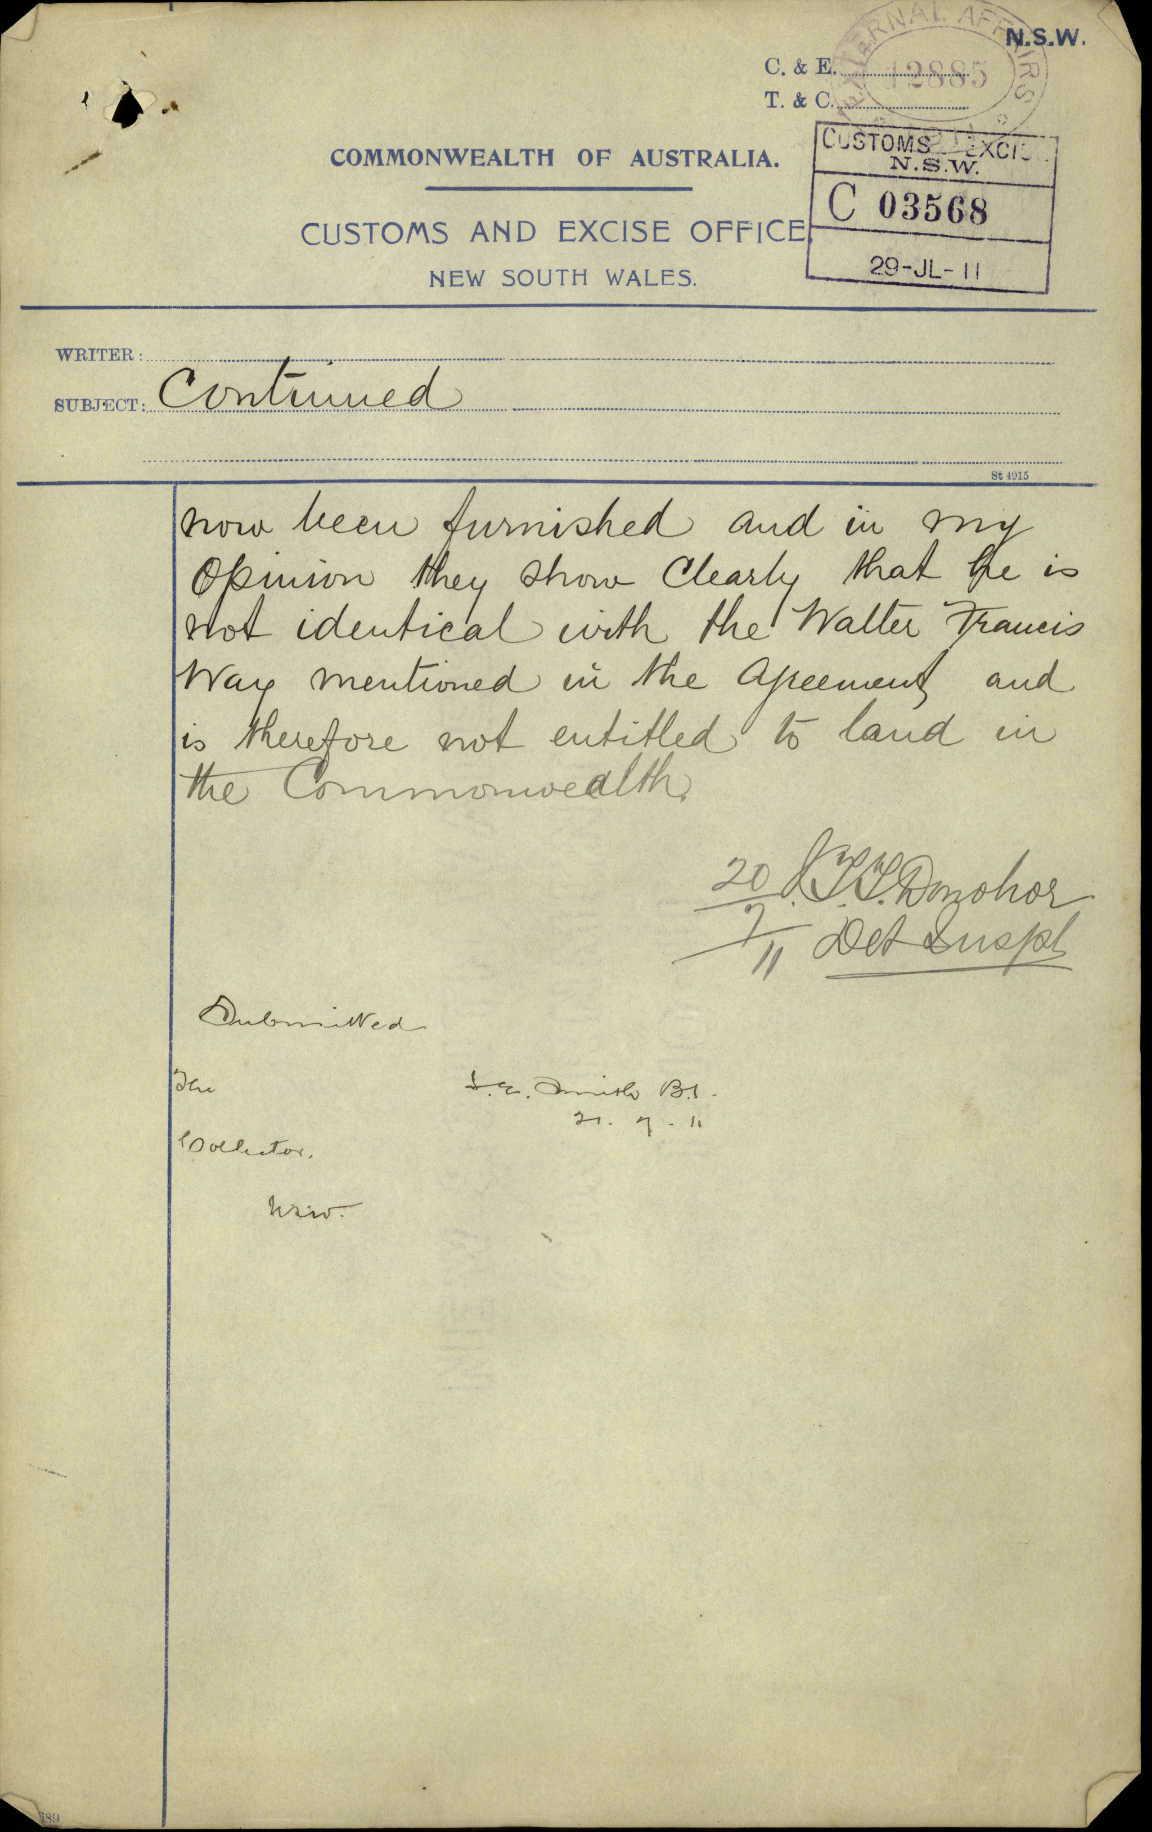 N.S.W.
EXTERNAL AFFAIRS
12885
C. & E.
T. & C.
CUSTOMS EXCISE
N.S.W.
C 03568
29-JL-11
COMMONWEALTH OF AUSTRALIA.
CUSTOMS AND EXCISE OFFICE,
NEW SOUTH WALES.
WRITER:
SUBJECT: Continued
St 4915
now been furnished and in my
Opinion they show Clearly that he is
not identical with the Walter Francis
Way mentioned in the Agreement, and
is therefore not entitled to land in
the Commonwealth.
20/7/11 J.T.T. Donohoe
Det Inspt
Submitted
The
Collector.
NSW.
I.E. Smith B.I.
21.7.11